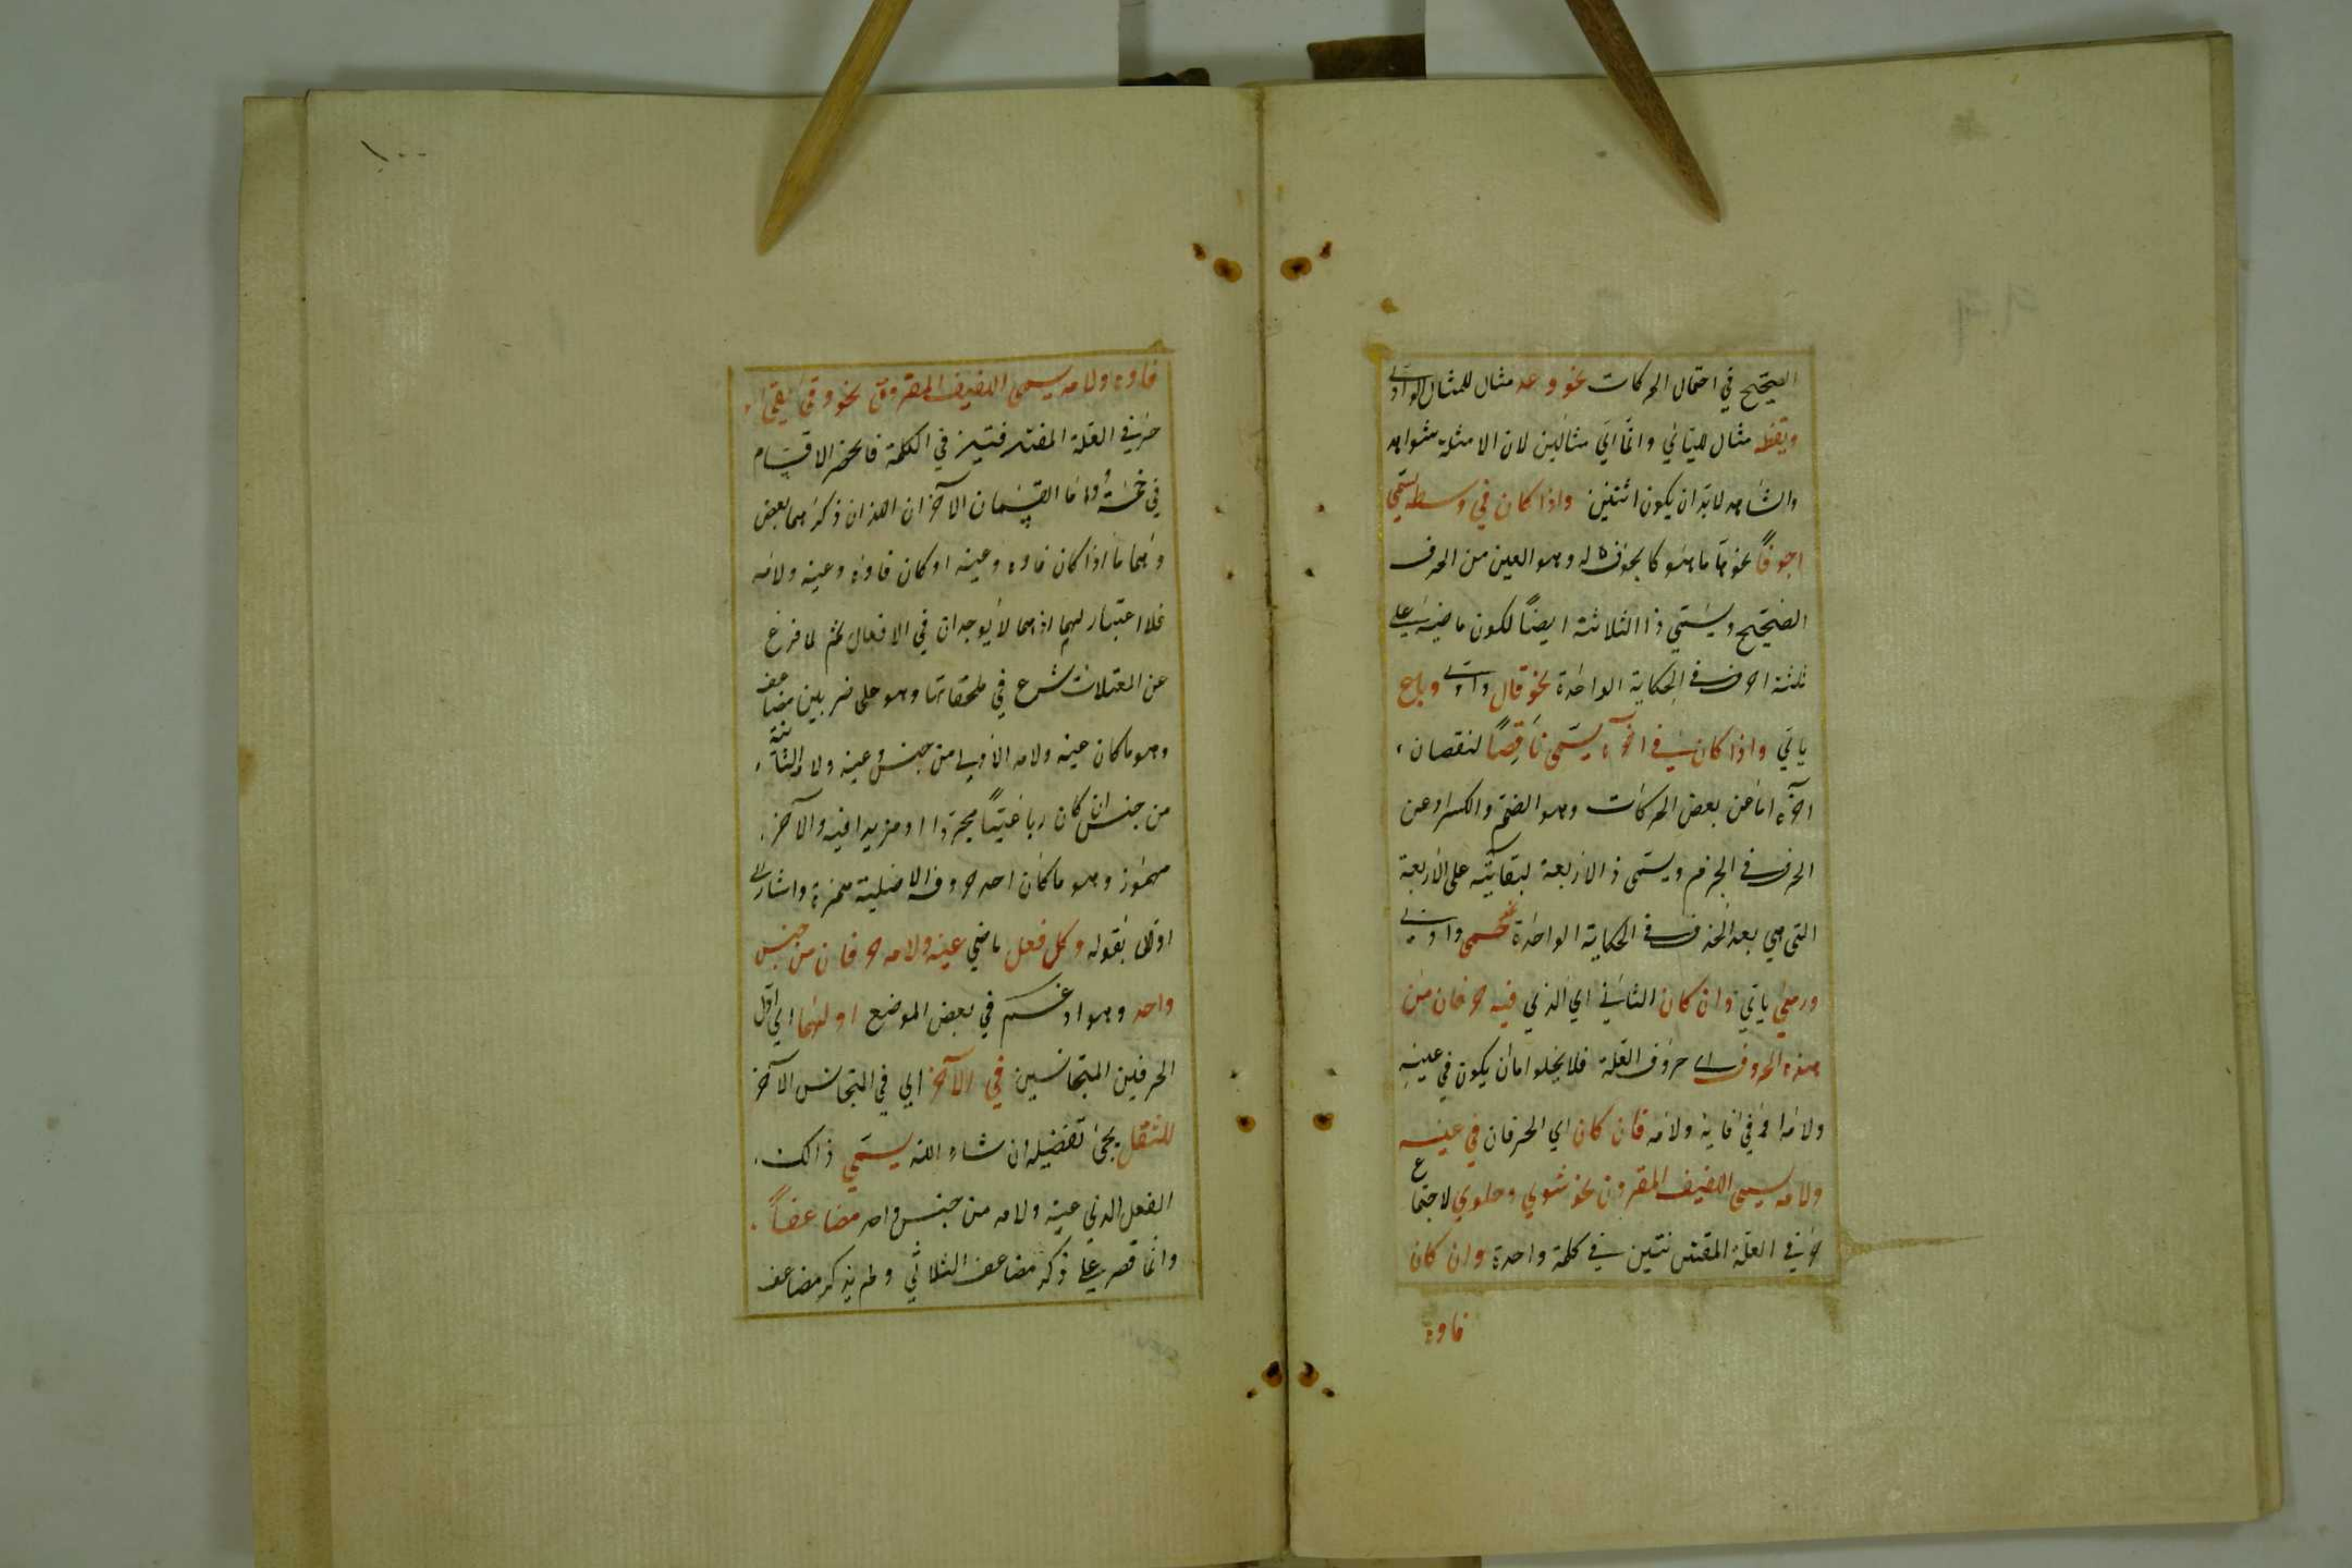 الصحيح في احتمال الحركات نحو وعد مثال للمثال الواوي
ويقظ مثال لليائي وانما اتي مثالين لان الامثلة شواهد
والشاهد لابد ان يكون اثنين واذا كان في وسطه يسمى
اجوفا نحو ما هو كالجوف له وهو العين من الحرف
الصحيح ويسمى ذا الثلاثة ايضا لكون ماضيه على
ثلثة احرف في الحكاية الواحدة نحو قال واوي وباع
يائي واذا كان في آخره يسمى ناقصا لنقصان
آخره اما عن بعض الحركات وهو الضم والكسر او عن
الحرف في الجزم ويسمى ذ الاربعة لبقائه على الاربعة
التي هي بعد الحذف في الحكاية الواحدة واوي
ورمى يائي وان كان الثاني اي الذي فيه حرفان من
هذه الحروف اي حروف العلة فلا يخلوا اما ان يكون في عينه
ولامه او في فايه ولامه فان كان اي الحرفان في عينه
ولامه يسمى اللفيف المقرون نحو شوي وحلوي لاجتماع
حرفي العلة المقترنتين في كلمة واحدة وان كان
فاوه
١٠٠
فاوه ولامه يسمى اللفيف المفروق نحو وقى يقى
حرفي العلة المفترقتين في الكلمة فانحصر الاقسام
في خمسة واما القسمان الآخران اللذان ذكرهما بعض
وهما ما اذا كان فاوه وعينه او كان فاوه وعينه ولامه
فلا اعتبار لهما اذ هما لا يوجدان في الافعال ثم لما فرغ
عن المعتلات شرع في ملحقاتها وهو على ضربين مضاعف
وهو ما كان عينه ولامه الاولى من جنس وعينه ولامه الثانية
من جنس ان كان رباعيا مجردا او مزيدا فيه والآخر
مهموز وهو ما كان احد حروفه الاصلية همزة واشار الى
اولى بقوله وكل فعل ماضي عينه ولامه حرفان من جنس
واحد وهو ادغم في بعض الموضع اولهما اي اول
الحرفين المتجانسين في الآخر اي في المتجانس الآخر
للثقل يجئ تفضيله ان شاء الله يسمى ذالك
الفعل الذي عينه ولامه من جنس واحد مضاعفا
وانما قصر على ذكر مضاعف الثلاثي ولم يذكر مضاعف